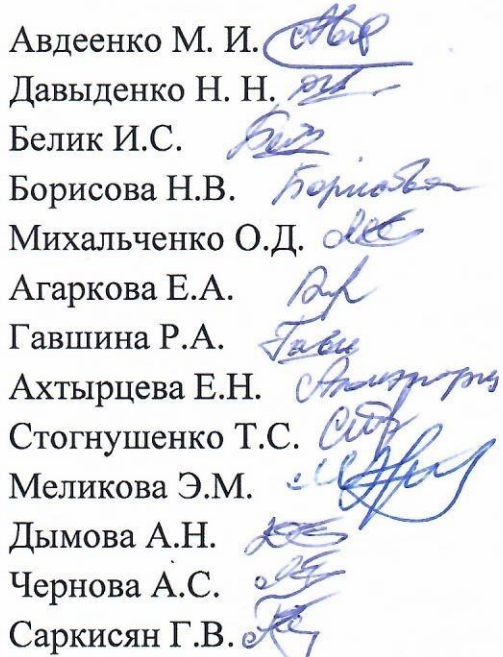 Авдеенко М. И.
Давыденко Н. Н.
Белик И.С.
Борисова Н.В. Борисова
Михальченко О.Д.
Агаркова Е.А.
Гавшина Р.А. Гавш
Ахтырцева Е.Н.
Стогнушенко Т.С.
Меликова Э.М.
Дымова А.Н.
Чернова А.С.
Саркисян Г.В.